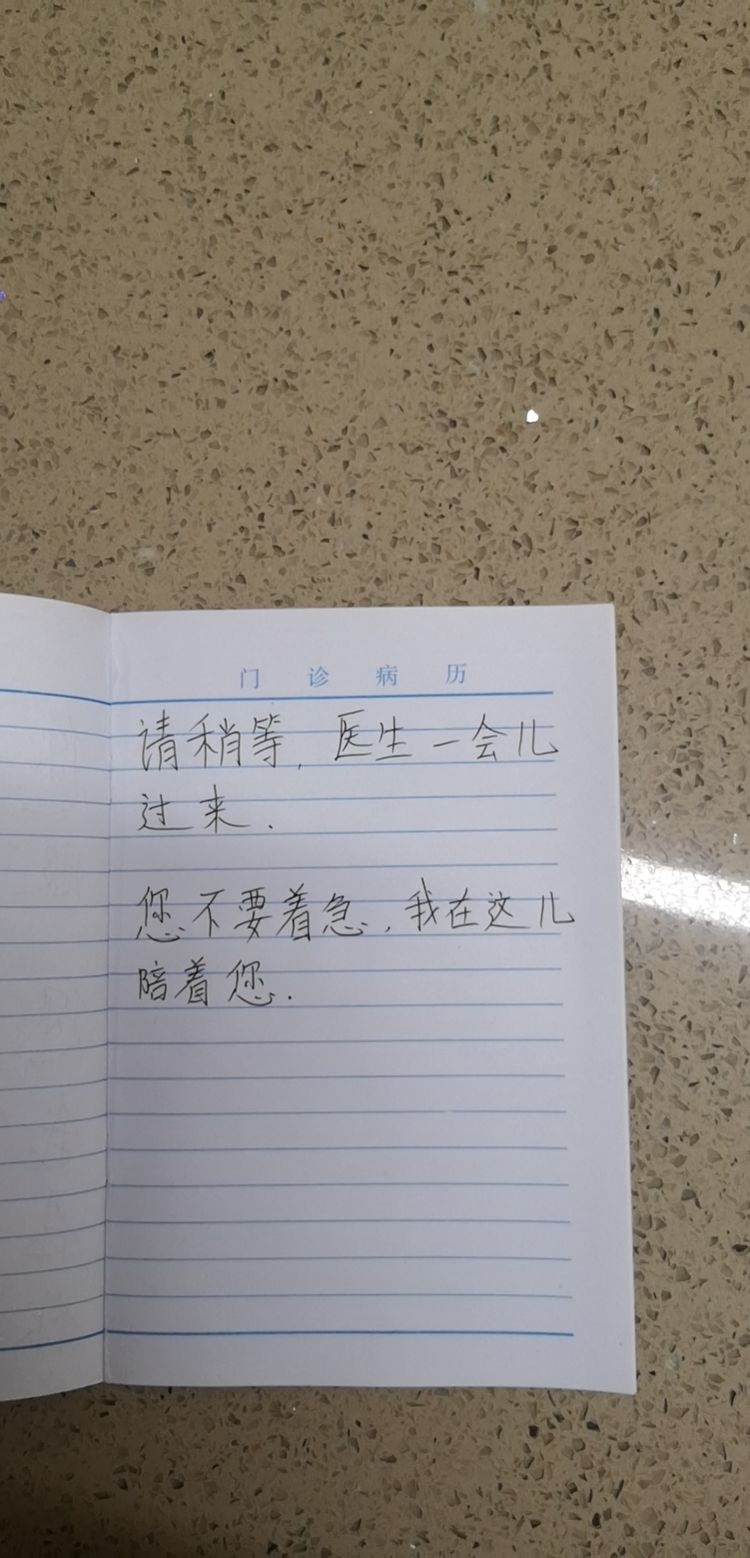 门诊病历
请稍等,医生一会儿
过来.
您不要着急,我在这儿
陪着您.